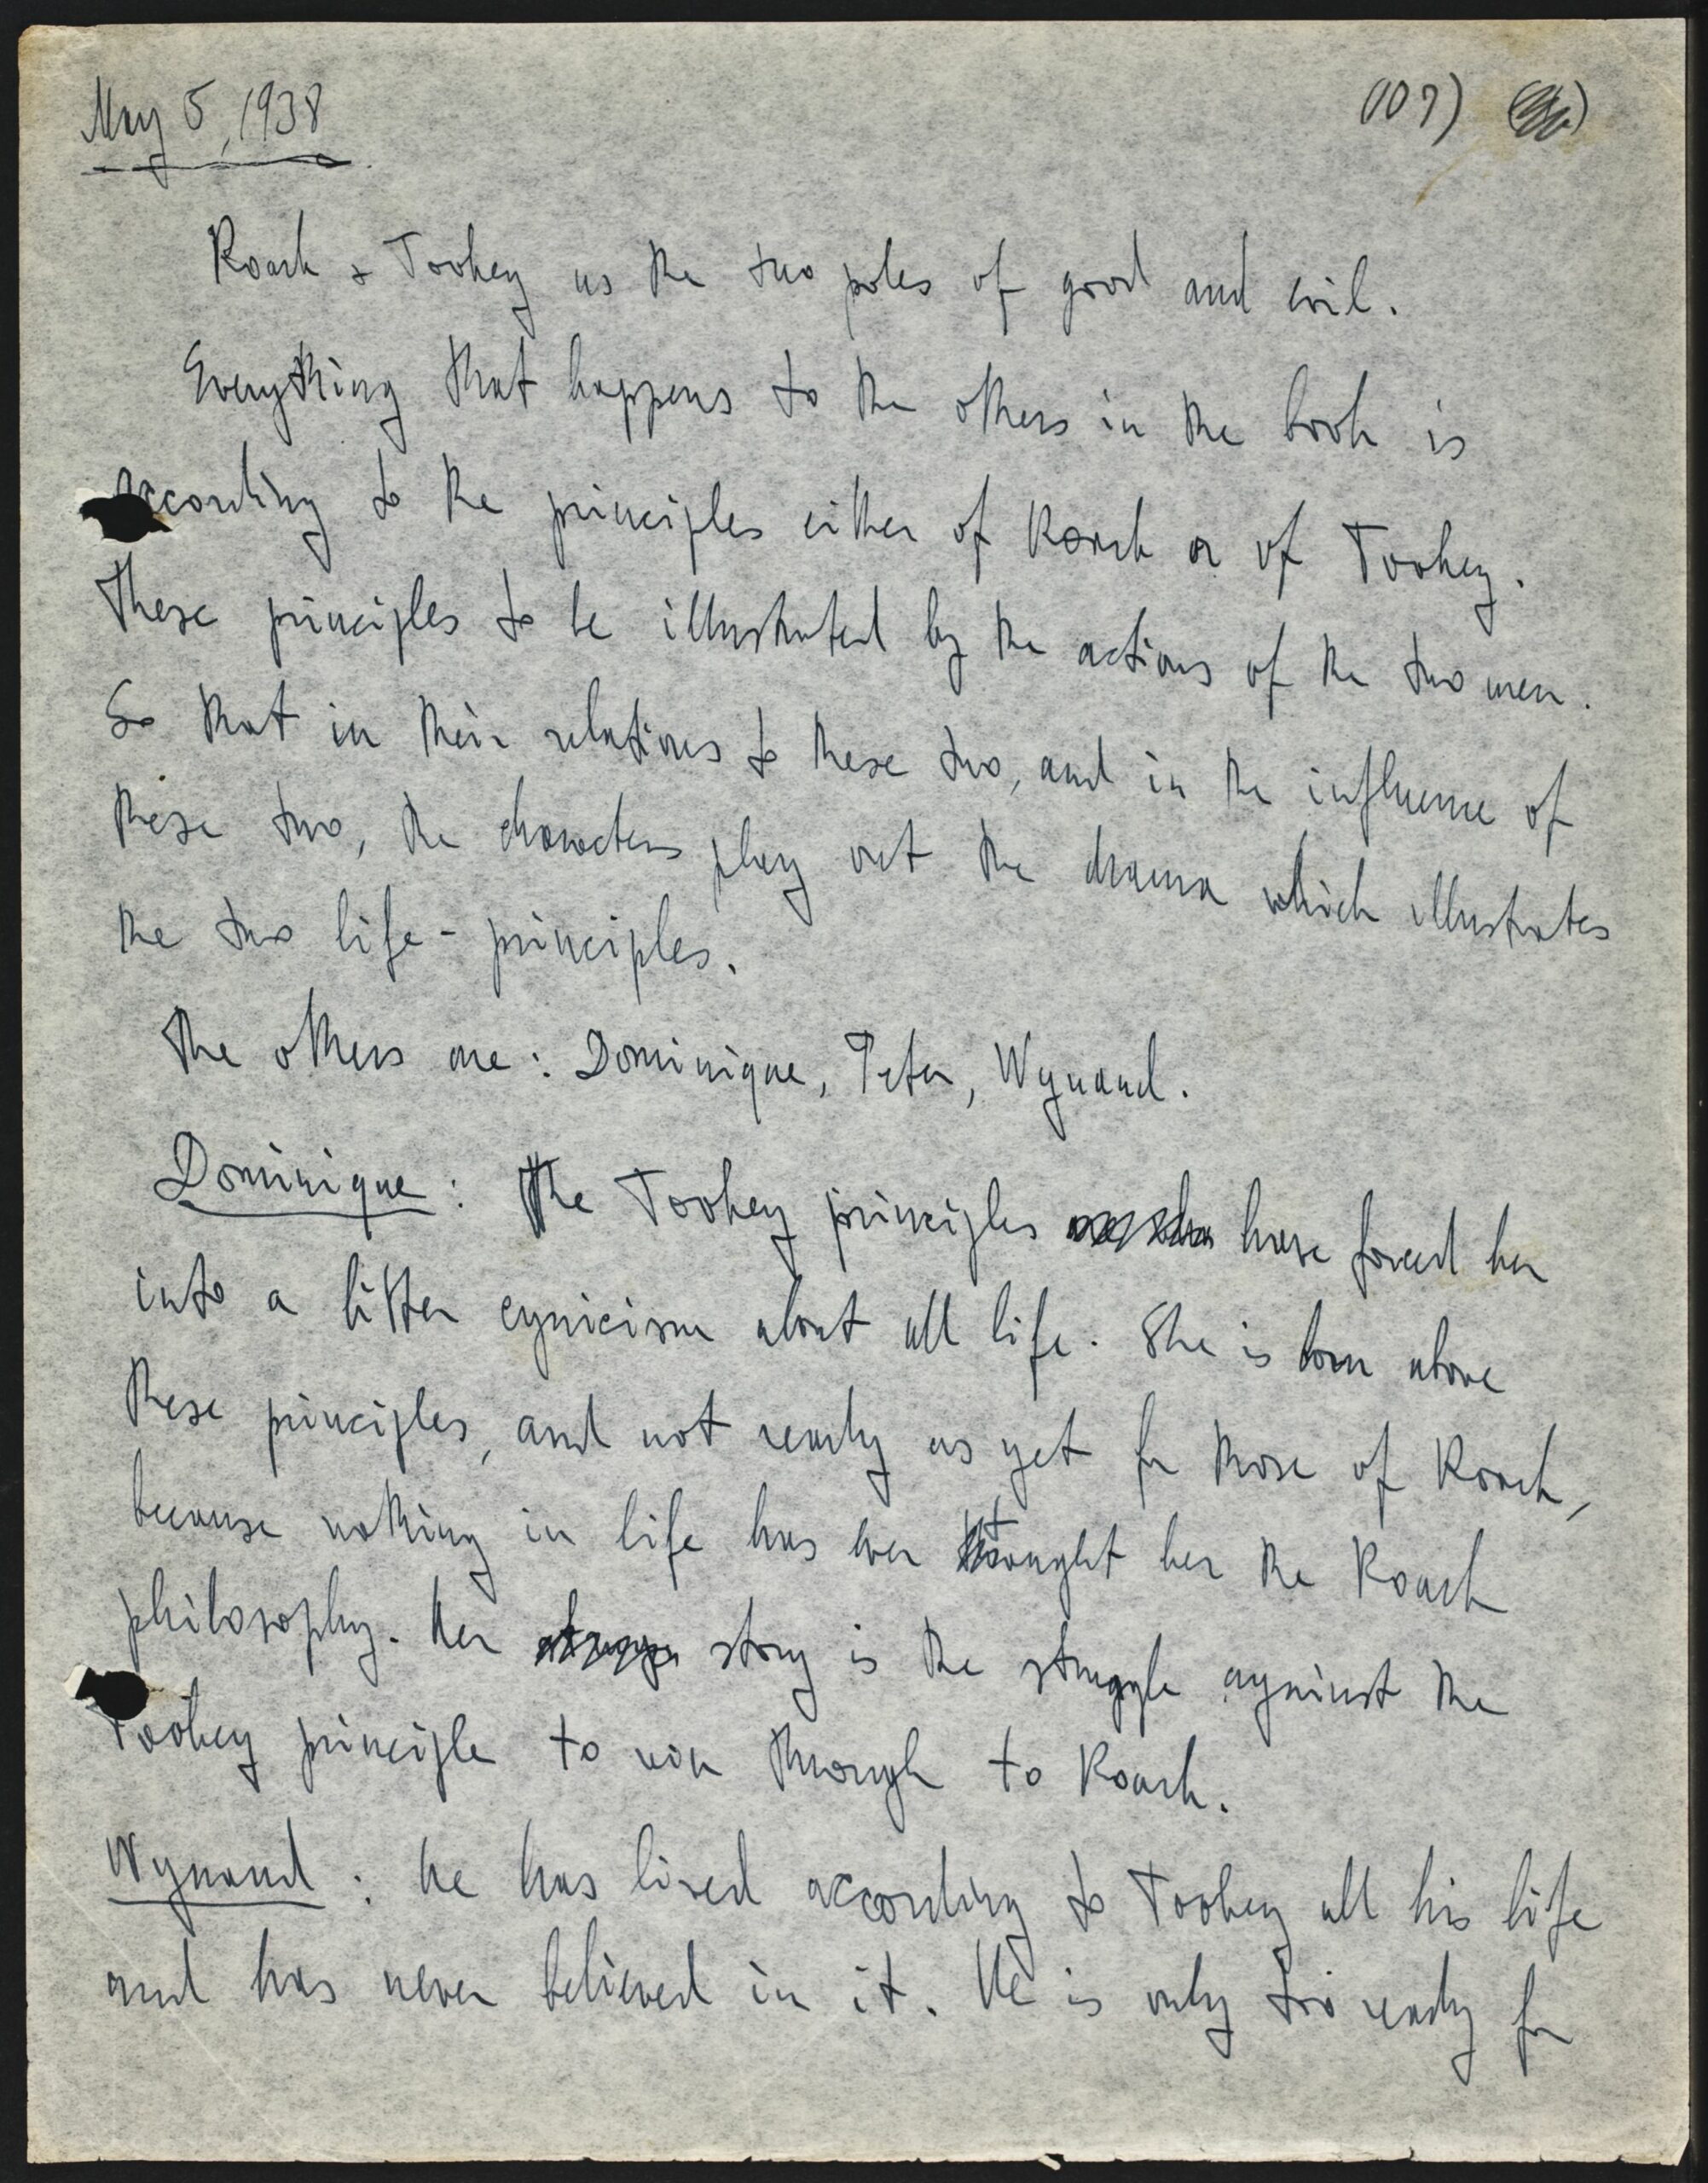 May 5, 1938 (107)
Roark & Toohey as the two poles of good and evil.
Everything that happens to the others in the book is
according to the principles either of Roark or of Toohey.
These principles to be illustrated by the actions of the two men.
So that in their relations to these two, and in the influence of
these two, the characters play out the drama which illustrates
the two life-principles.
The others are: Dominique, Peter, Wynand.
Dominique: The Toohey principles have forced her
into a bitter cynicism about all life. She is born above
these principles, and not ready as yet for those of Roark,
because nothing in life has ever taught her the Roark
philosophy. Her story is the struggle against the
Toohey principle to win through to Roark.
Wynand: He has lived according to Toohey all his life
and has never believed in it. He is only too ready for